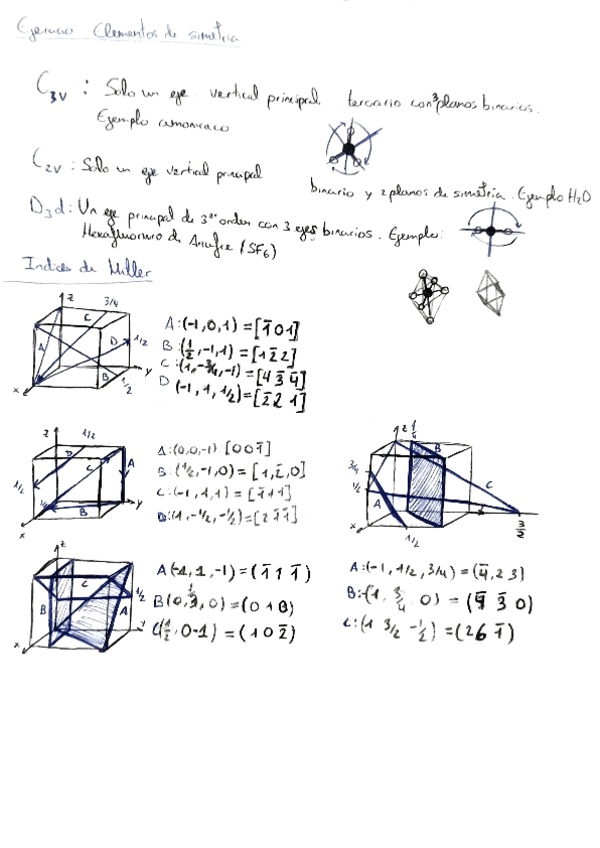 Ejercicio Elementos de simetria
C3v : Solo un eje vertical principal ternario con 3 planos binarios.
Ejemplo amoniaco
C2v : Solo un eje vertical principal
binario y 2 planos de simetria. Ejemplo H2O
D3d: Un eje principal de 3er orden con 3 ejes binarios. Ejemplo:
Hexafluoruro de Azufre (SF6)
Indices de Miller
z 3/4 C A D 1/2 B 1/2 x y
A:(-1,0,1) = [1̄01]
B:(1/2,-1,1) = [12̄2]
C:(1,-3/4,-1) = [43̄4̄]
D (-1,1,1/2) = [2̄21]
z 1/2 D C A 1/2 B x y
A:(0,0,-1) [001̄]
B:(1/2,-1,0) = [1,2̄,0]
C:(-1,1,1) = [1̄11]
D:(1,-1/2,-1/2) = [21̄1̄]
z 1/4 B 3/4 1/2 A C 1/2 x 3/2
z C B A 1/2 x y
A(-1,1,-1) = (1̄11̄)
B(0,1,0) = (010)
C(1/2,0-1) = (102̄)
A:(-1,1/2,3/4) = (4̄,2 3)
B: 3/4 0) = (4̄ 3̄ 0)
C:(1 3/2 -1/2) = (26 1̄)